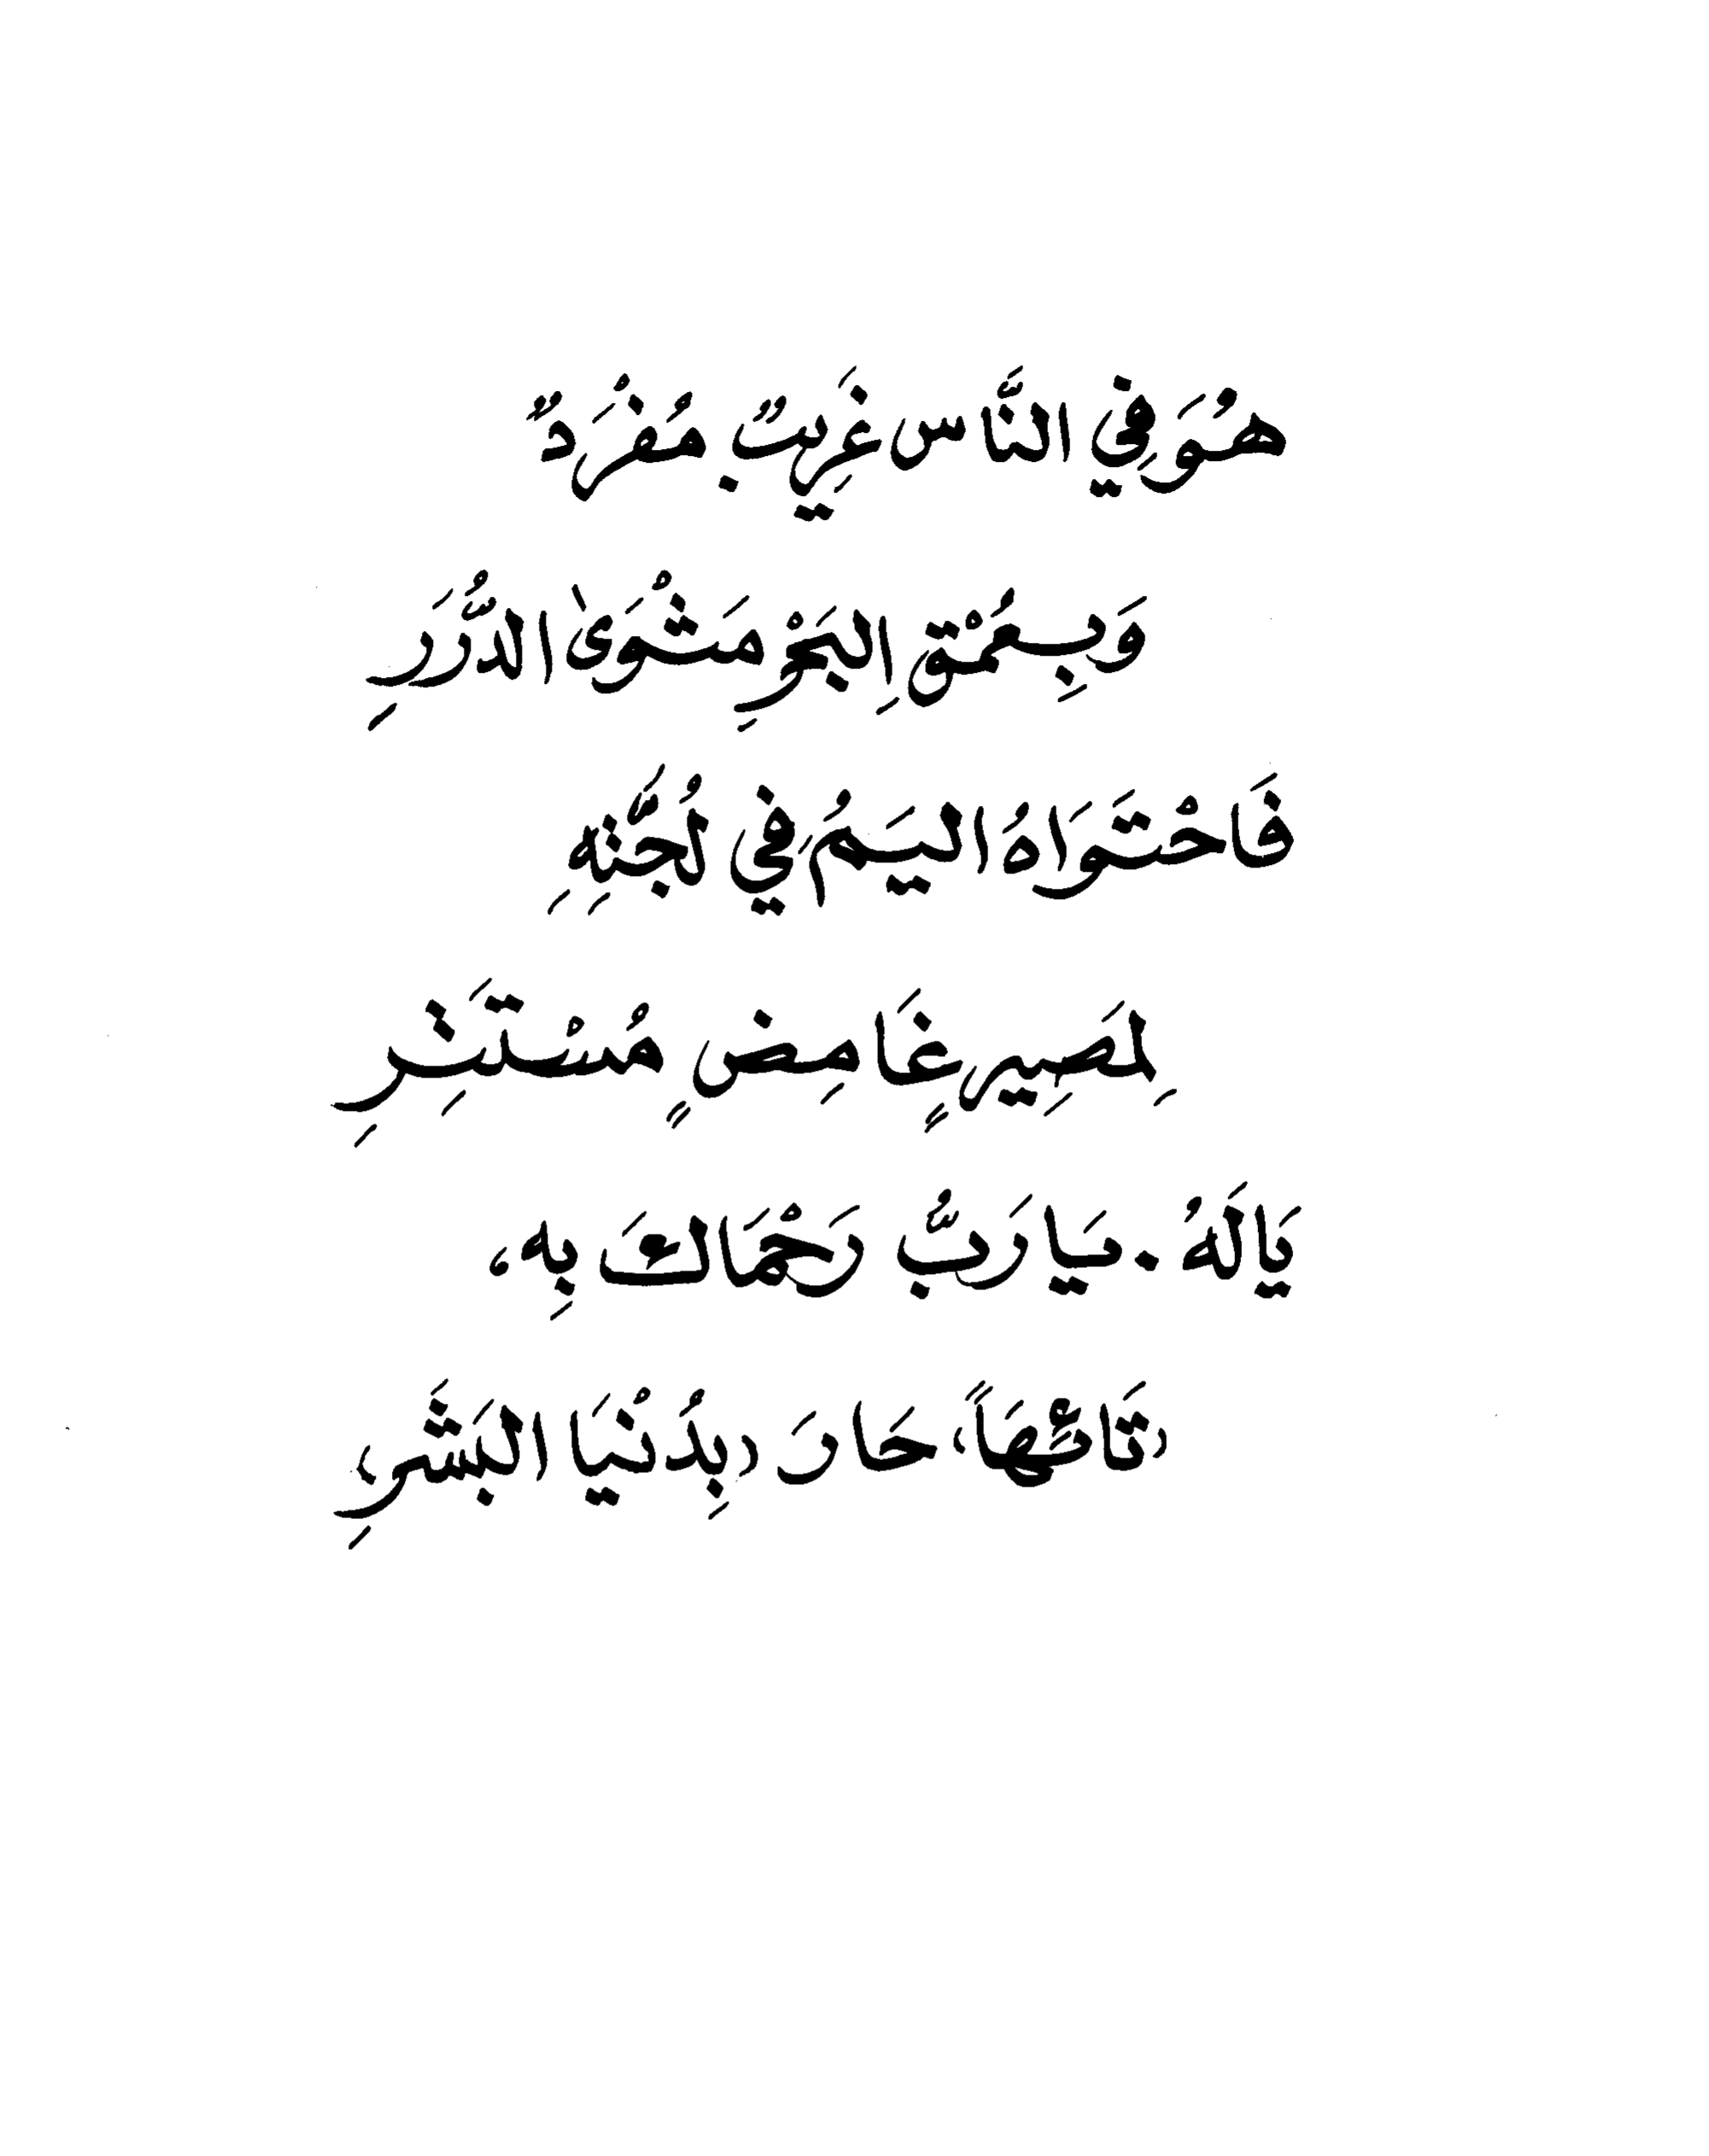 هُوَ فِي النَّاسِ غَرِيبٌ مُفْرَدٌ
وَبِعُمْقِ البَحْرِ مَثْوَىٰ الدُّرَرِ
فَاحْتَوَاهُ اليَمُّ فِي لُجَّتِهِ
لِمَصِيرٍ غَامِضٍ مُسْتَتِرِ
يَا لَهُ . يَا رَبُّ رُحْمَاكَ بِهِ،
تَائِهًا، حَارَ بِدُنْيَا البَشَرِ،